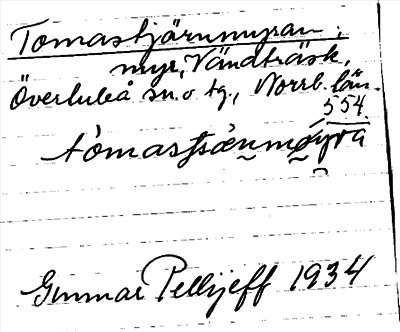 Tomastjärnmyran;
myr, Vändträsk,
Överluleå sn. o tg., Norrb. län.
554
Gunnar Pellijeff 1934